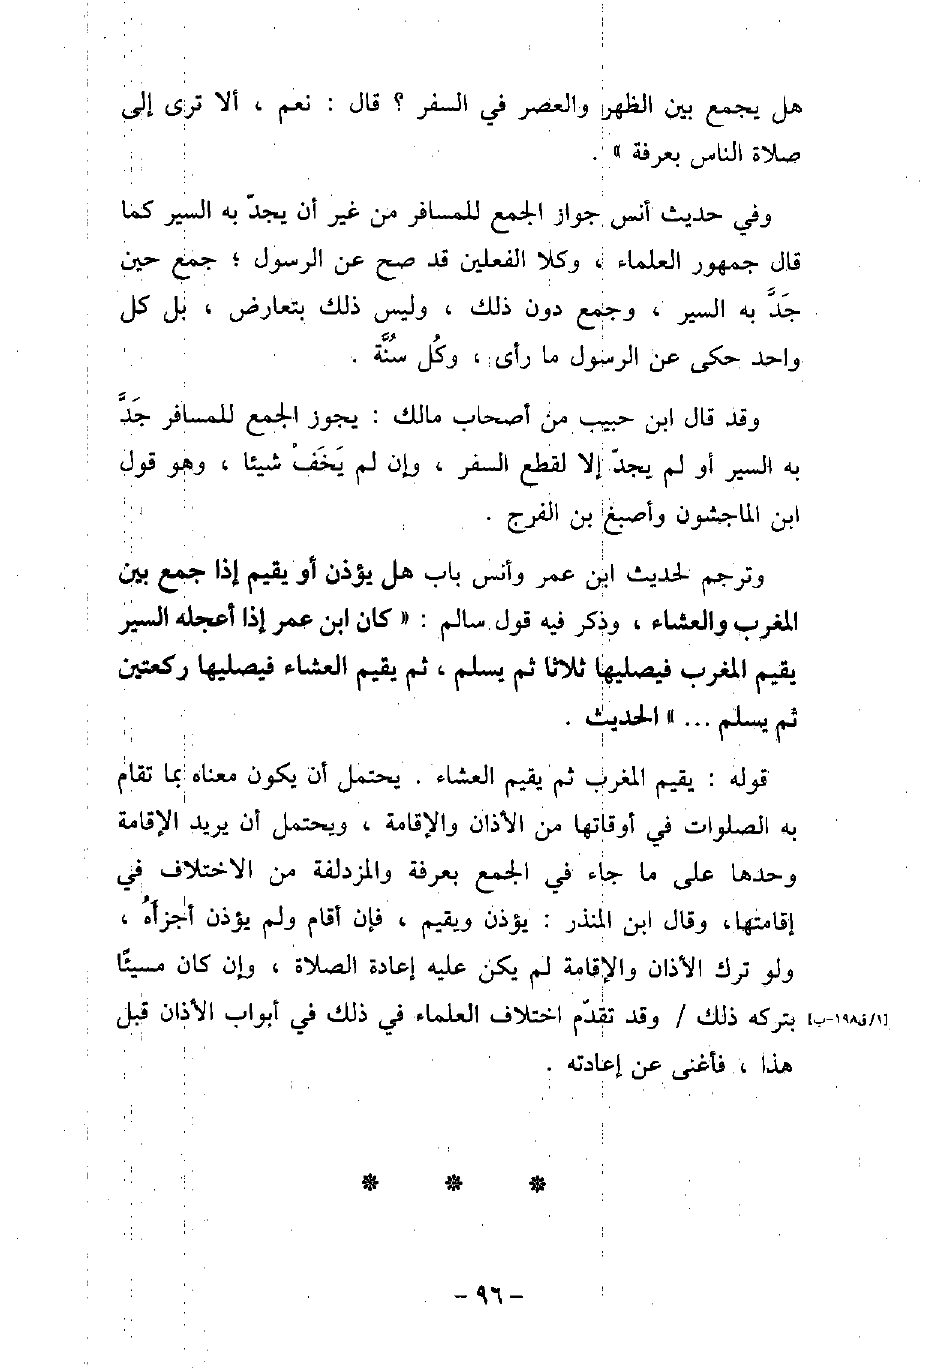 هل يجمع بين الظهر والعصر في السفر ؟ قال : نعم ، ألا ترى إلى
صلاة الناس بعرفة » .
وفي حديث أنس جواز الجمع للمسافر من غير أن يجدّ به السير كما
قال جمهور العلماء ، وكلا الفعلين قد صح عن الرسول ؛ جمع حين
جَدَّ به السير ، وجمع دون ذلك ، وليس ذلك بتعارض ، بل كل
واحد حكى عن الرسول ما رأى ، وكُل سُنَّة .
وقد قال ابن حبيب من أصحاب مالك : يجوز الجمع للمسافر جَدَّ
به السير أو لم يجدّ إلا لقطع السفر ، وإن لم يَخَفْ شيئا ، وهو قول
ابن الماجشون وأصبغ بن الفرج .
وترجم لحديث ابن عمر وأنس باب هل يؤذن أو يقيم إذا جمع بين
المغرب والعشاء ، وذكر فيه قول سالم : « كان ابن عمر إذا أعجله السير
يقيم المغرب فيصليها ثلاثا ثم يسلم ، ثم يقيم العشاء فيصليها ركعتين
ثم يسلم ... » الحديث .
قوله : يقيم المغرب ثم يقيم العشاء . يحتمل أن يكون معناه بما تقام
به الصلوات في أوقاتها من الأذان والإقامة ، ويحتمل أن يريد الإقامة
وحدها على ما جاء في الجمع بعرفة والمزدلفة من الاختلاف في
إقامتها، وقال ابن المنذر : يؤذن ويقيم ، فإن أقام ولم يؤذن أجزأهُ ،
ولو ترك الأذان والإقامة لم يكن عليه إعادة الصلاة ، وإن كان مسيئًا
بتركه ذلك / وقد تقدّم اختلاف العلماء في ذلك في أبواب الأذان قبل [١/ق١٩٨-ب]
هذا ، فأغنى عن إعادته .
* * *
- ٩٦ -